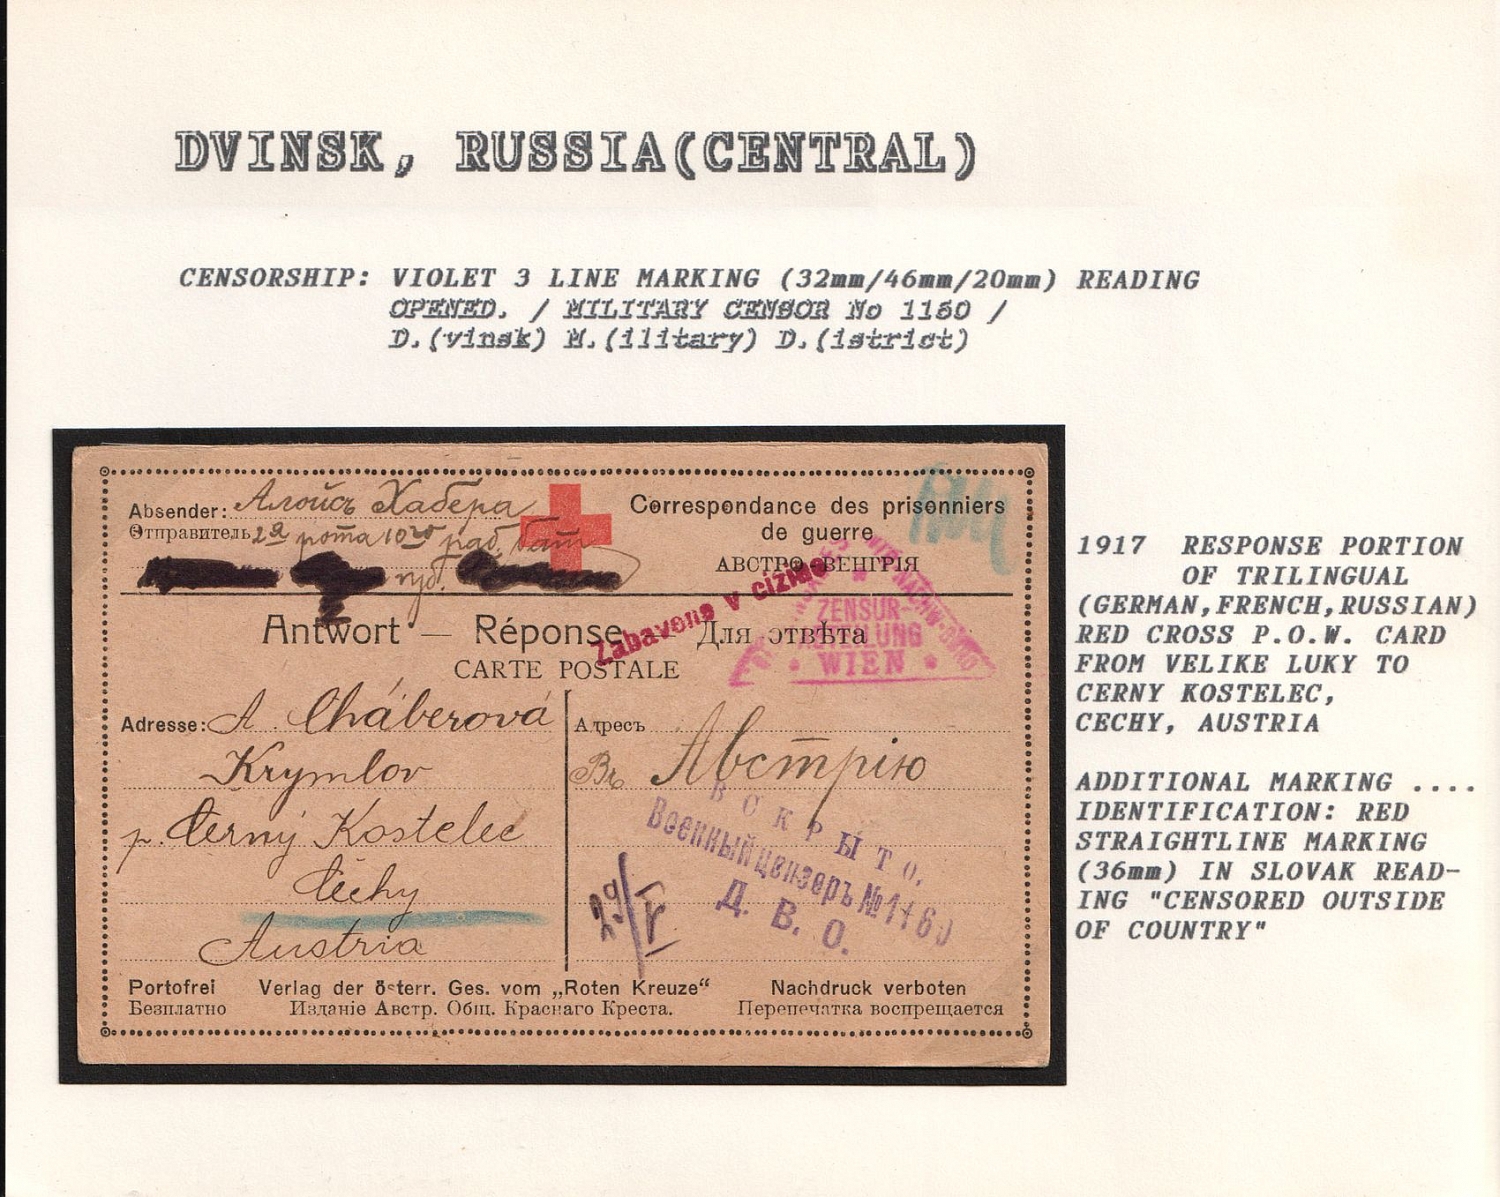 DVINSK, RUSSIA(CENTRAL)
CENSORSHIP: VIOLET 3 LINE MARKING (32mm/46mm/20mm) READING
OPENED. / MILITARY CENSOR No 1160 /
D.(vinsk) M.(ilitary) D.(istrict)
Absender: Алойсъ Хабера
Отправитель 2я рота 10го раб. бат
Correspondance des prisonniers
de guerre
АВСТРО-ВЕНГРІЯ
Antwort — Réponse Для отвѣта
CARTE POSTALE
Zabaveno v cizině
ZENSUR-
ABTEILUNG
WIEN
Adresse: A. Cháberová
Krymlov
p. Černý Kostelec
Čechy
Austria
Адресъ
Въ Австрію
ВСКРЫТО.
Военный цензоръ № 1160
Д. В. О.
29/V
Portofrei Verlag der österr. Ges. vom „Roten Kreuze“ Nachdruck verboten
Безплатно Изданіе Австр. Общ. Краснаго Креста. Перепечатка воспрещается
1917 RESPONSE PORTION
OF TRILINGUAL
(GERMAN,FRENCH,RUSSIAN)
RED CROSS P.O.W. CARD
FROM VELIKE LUKY TO
CERNY KOSTELEC,
CECHY, AUSTRIA
ADDITIONAL MARKING ....
IDENTIFICATION: RED
STRAIGHTLINE MARKING
(36mm) IN SLOVAK READ-
ING "CENSORED OUTSIDE
OF COUNTRY"